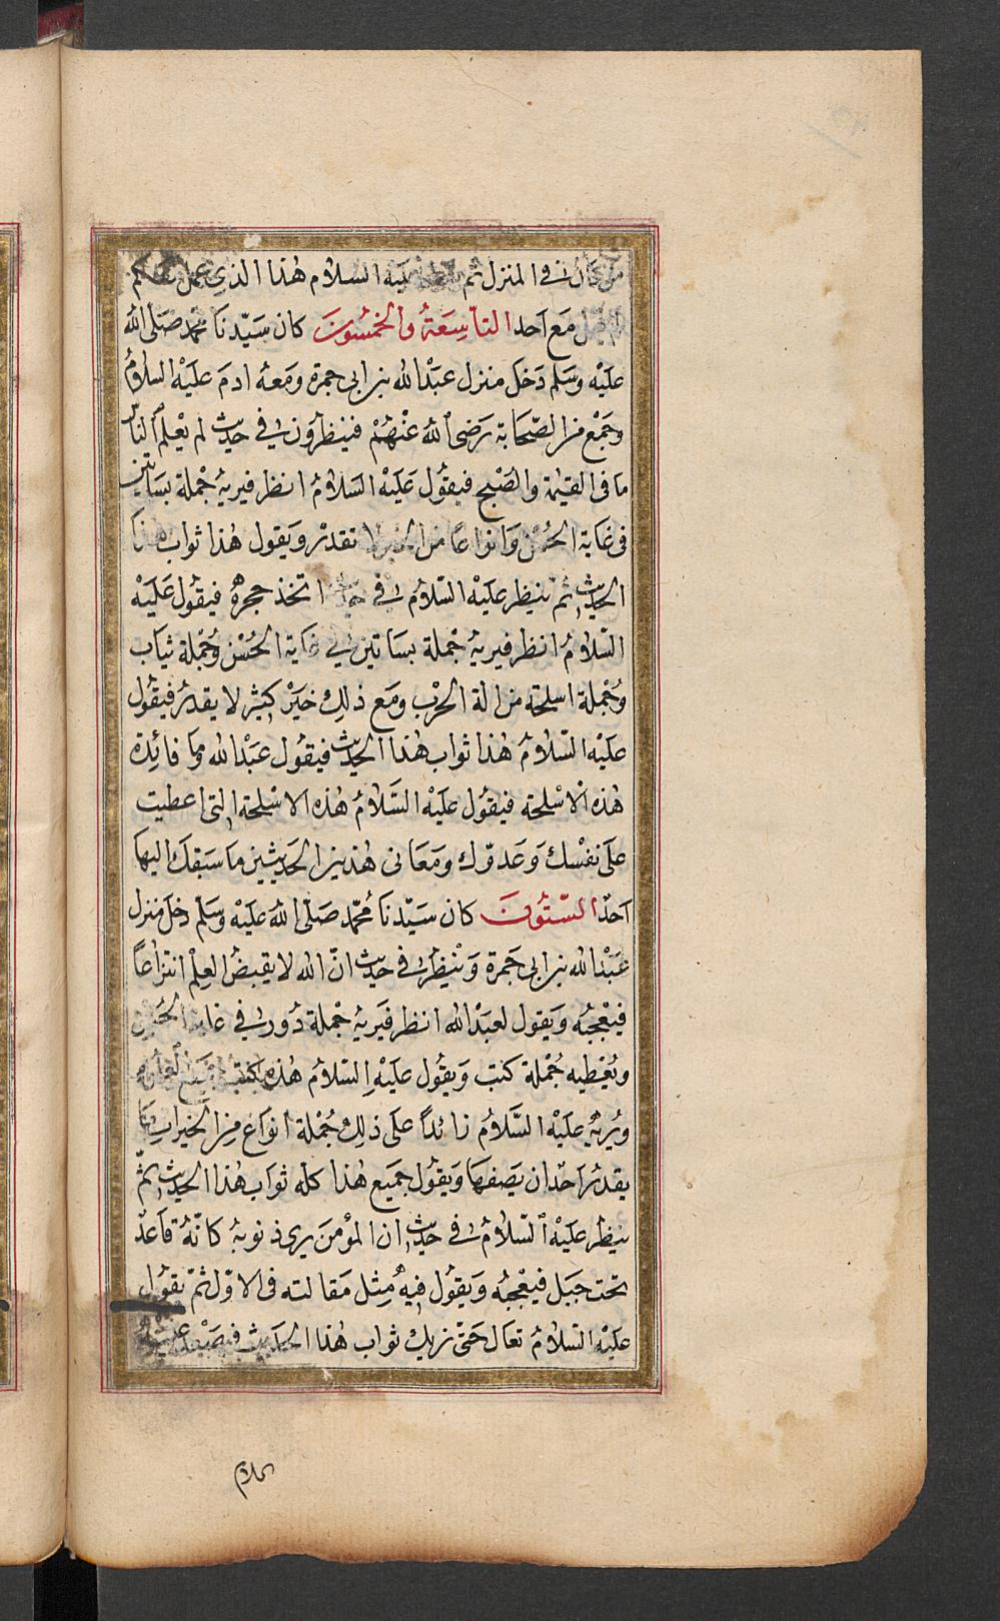 من كان في المنزل ثم عليه السلام هٰذا الذي عمل
مع احد التاسِعَةُ والخمسُونَ كان سَيّدنَا محمد صَلى الله
عليْه وسَلم دَخلَ منزل عبْدالله بن ابى جمرة ومَعه ادمَ عليْه السلامُ
وجَمْع من الصّحَابة رَضى الله عنْهُمْ فينظرُون في حديث لم يعْلم الناس
ما فى القيمة والصّبح فيقُول عَليْه السَلامُ انظر فيريهُ جُملة بسَاتين
فى غاية الحُسْن وَانواعًا من لا تقدرْ ويَقول هٰذا ثواب هذا
الحَديث ثمّ ينظر عليْه السّلامُ في اتخذ حجرهُ فيقُول عَليْه
السّلامُ انظر فيريهُ جُملة بسَاتين في غاية الحُسْن وجُملة ثياب
وجُملة اسلحة من الة الحَرْب ومَع ذلك خيَرْ كثير لا يقدرُ فيقُول
عليْه السّلامُ هٰذا ثواب هٰذا الحديث فيقُول عَبْدالله وما فائِدة
هٰذه الاسْلحة فيقُول عليْه السَّلامُ هٰذه الاسْلحة التى اعطيت
على نفْسك وَعَدوّك ومَعَانى هٰذين الحَديثين ما سَبقك اليها
احَدٌ السّتُونَ كان سَيّدنَا مُحمّد صَلى الله عليْه وسَلم دخل منزل
عَبْدالله بن ابى جَمرة وَينظر في حديث انّ الله لا يقبضُ العِلمْ انتزاعًا
فيعْجبُه ويَقول لعبْدالله انظر فيَريهُ جُملة دُور في غاية الحُسْن
ويُعْطيه جُملة كتب وَيقُول عليْهِ السّلامُ هٰذه كتب
ويُريهُ عليْه السَّلامُ زائداً على ذلكَ جُمْلة انوَاع مِن الخيراتِ مَا
يقدرُ احَدٌ ان يَصفهَا وَيقُول جَميع هٰذا كله ثوَاب هٰذا الحديث ثمّ
ينظر عليْه السّلامُ في حديث ان المؤمنَ يرى ذنوبهُ كانهُ قاعدٌ
تحت جبَل فيعْجبُه وَيقُول فيهُ مِثل مَقالته فى الاوّل ثمّ يقُول
عليْه السّلامُ تعَال حَتى نريك ثوَاب هٰذا الحَديث